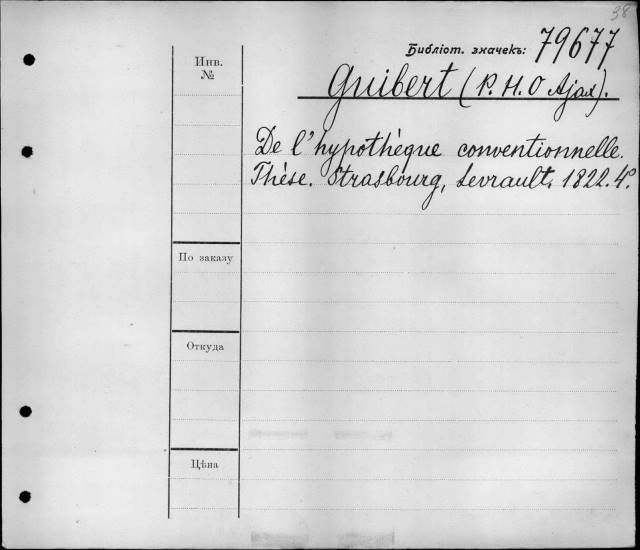 38
Библіот. значекъ: 79677
Guibert (P. H. O Ajax).
De l'hypothèque conventionnelle.
Thèse. Strasbourg, Levrault, 1822. 4°.
Инв.
№
По заказу
Откуда
Цѣна